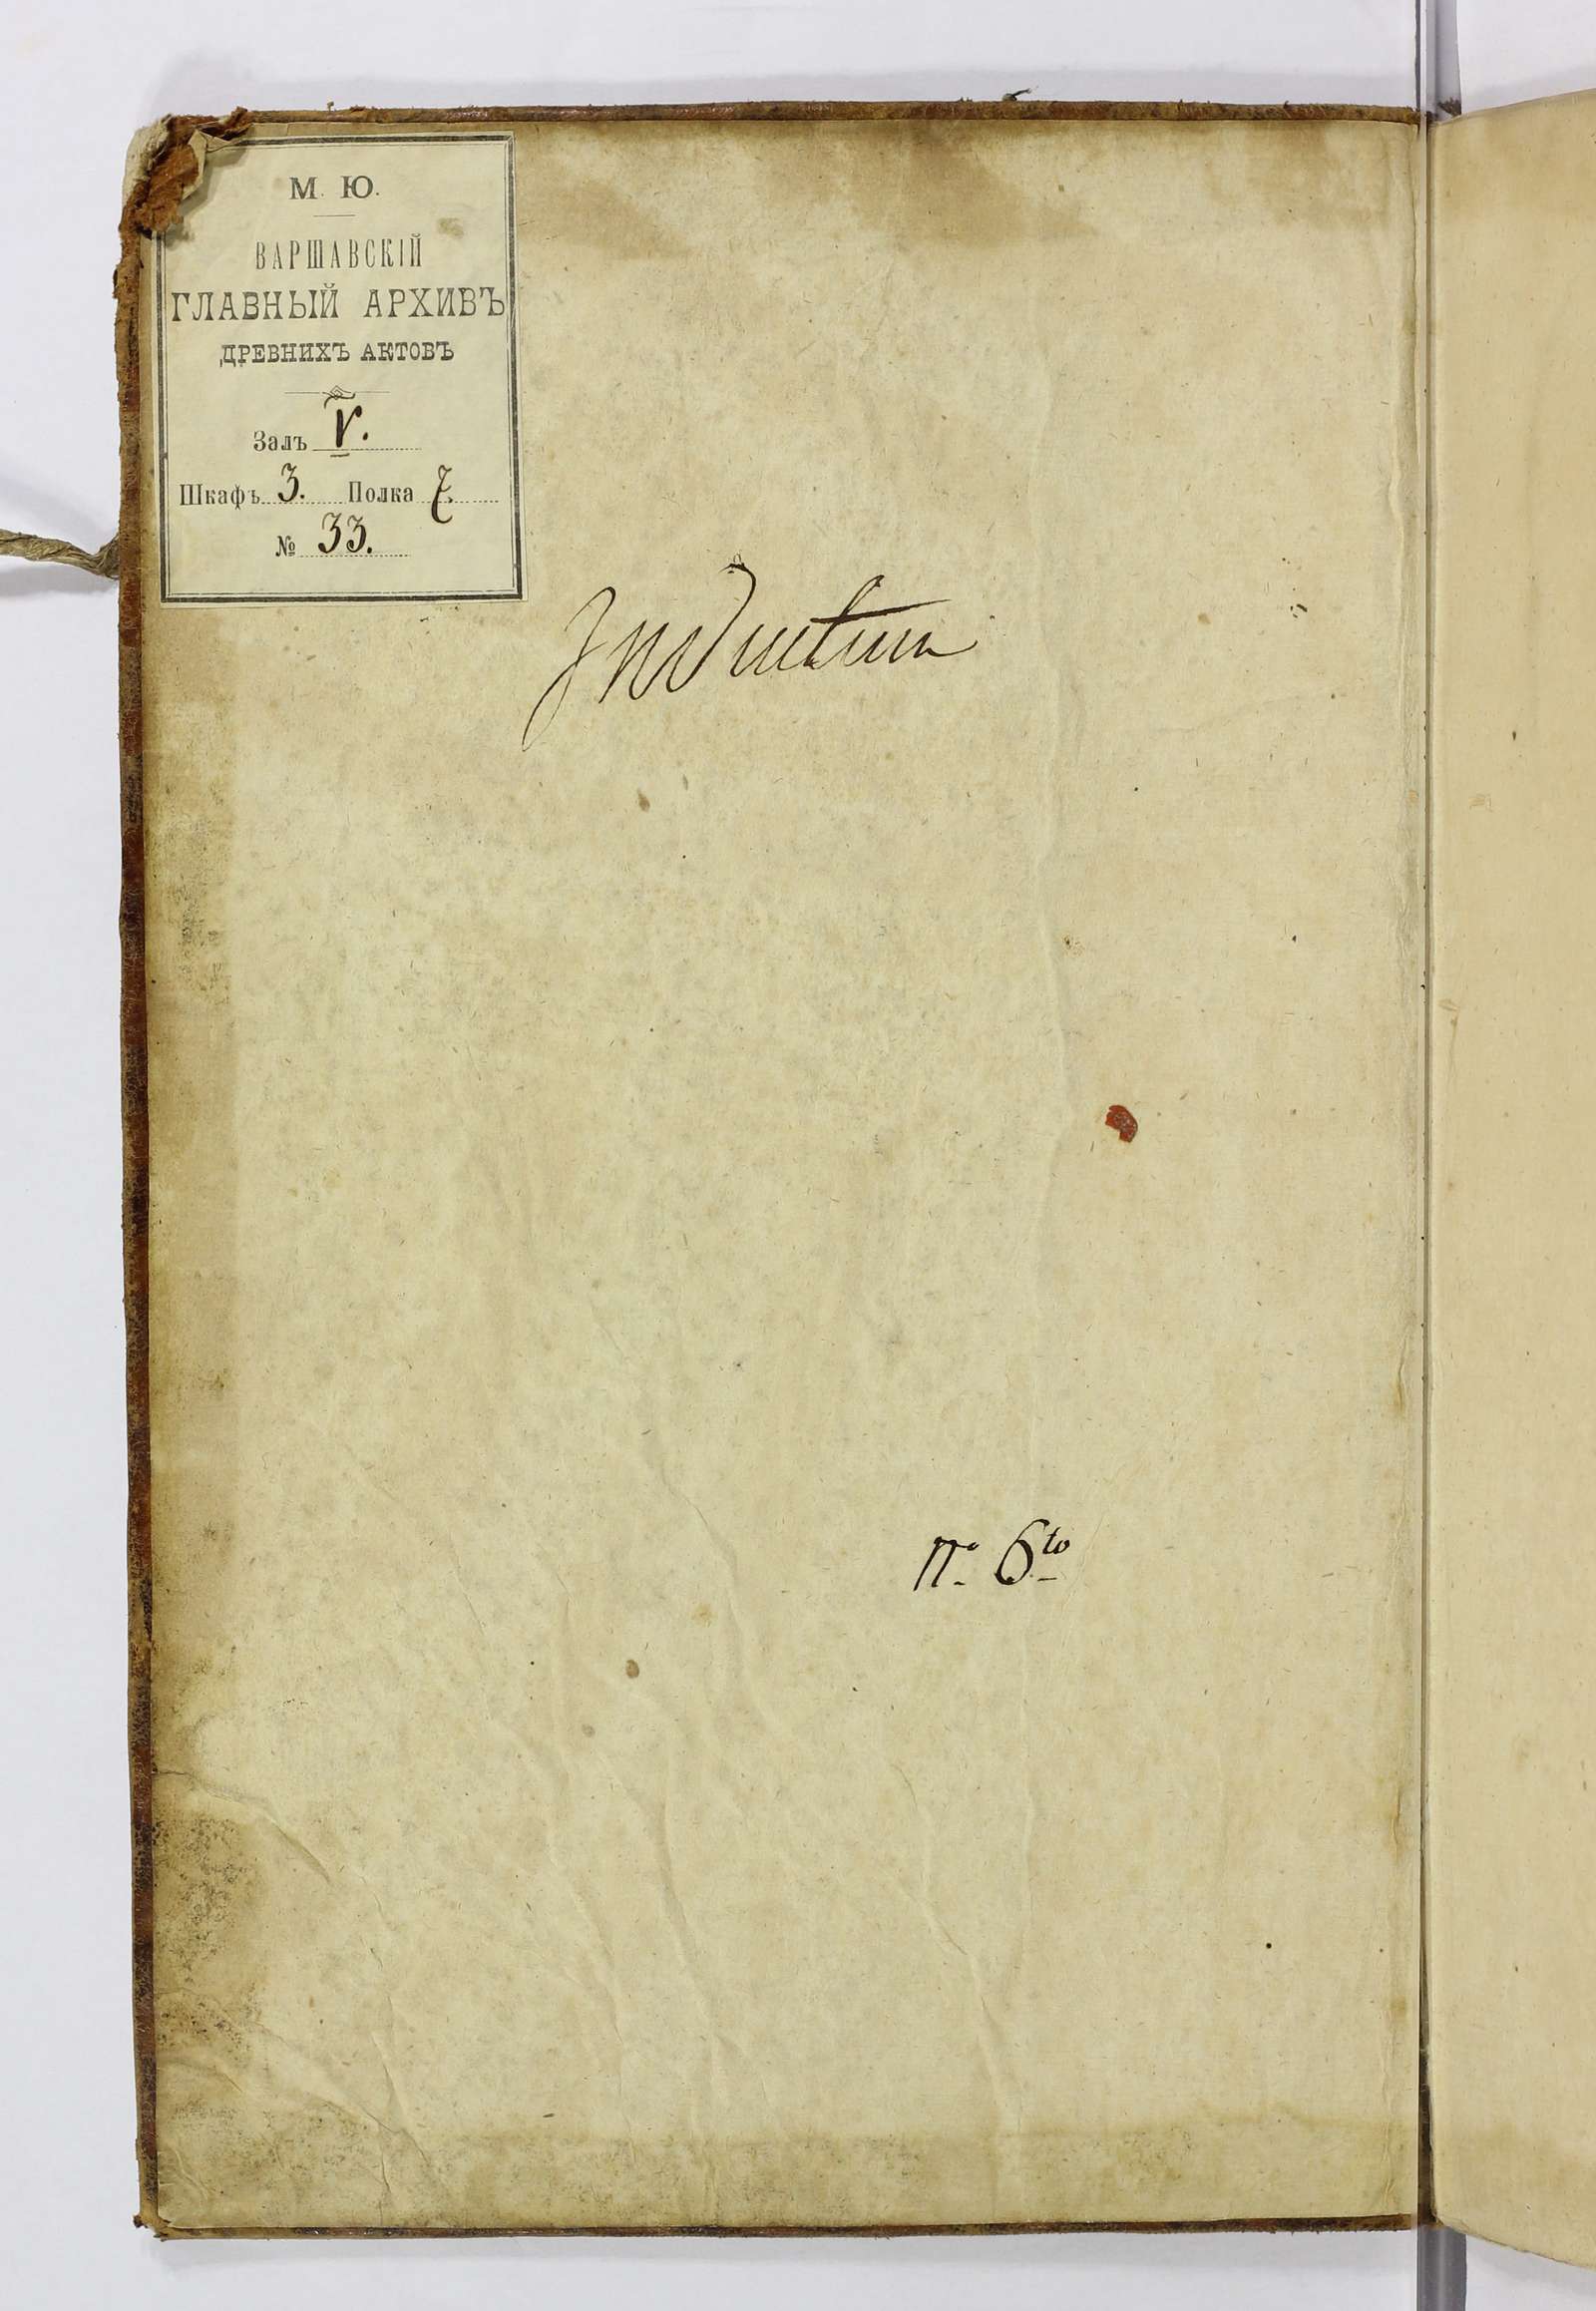 М. Ю.
ВАРШАВСКІЙ
ГЛАВНЫЙ АРХИВЪ
ДРЕВНИХЪ АКТОВЪ
Залъ V.
Шкафъ 3. Полка 7
№ 33.
Inductum
N° 6to